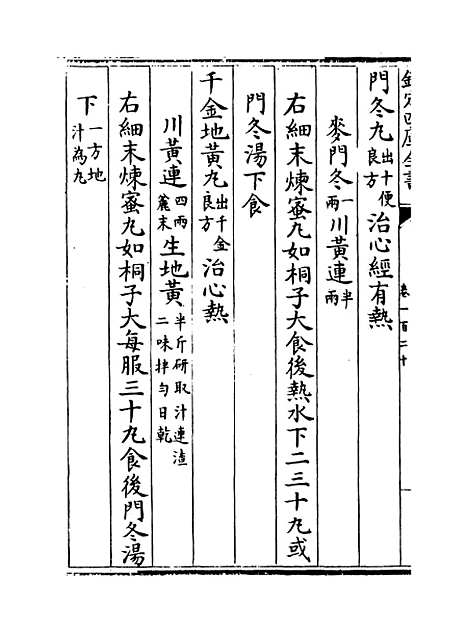 欽定四庫全書
卷一百二十
門冬丸出十便良方治心經有熱
麥門冬一兩川黃連半兩
右細末煉蜜丸如桐子大食後熱水下二三十丸或
門冬湯下食
千金地黃丸出千金良方治心熱
川黃連四兩麄末生地黃半斤研取汁連渣二味拌勻日乾
右細末煉蜜丸如桐子大每服三十丸食後門冬湯
下一方地汁為丸